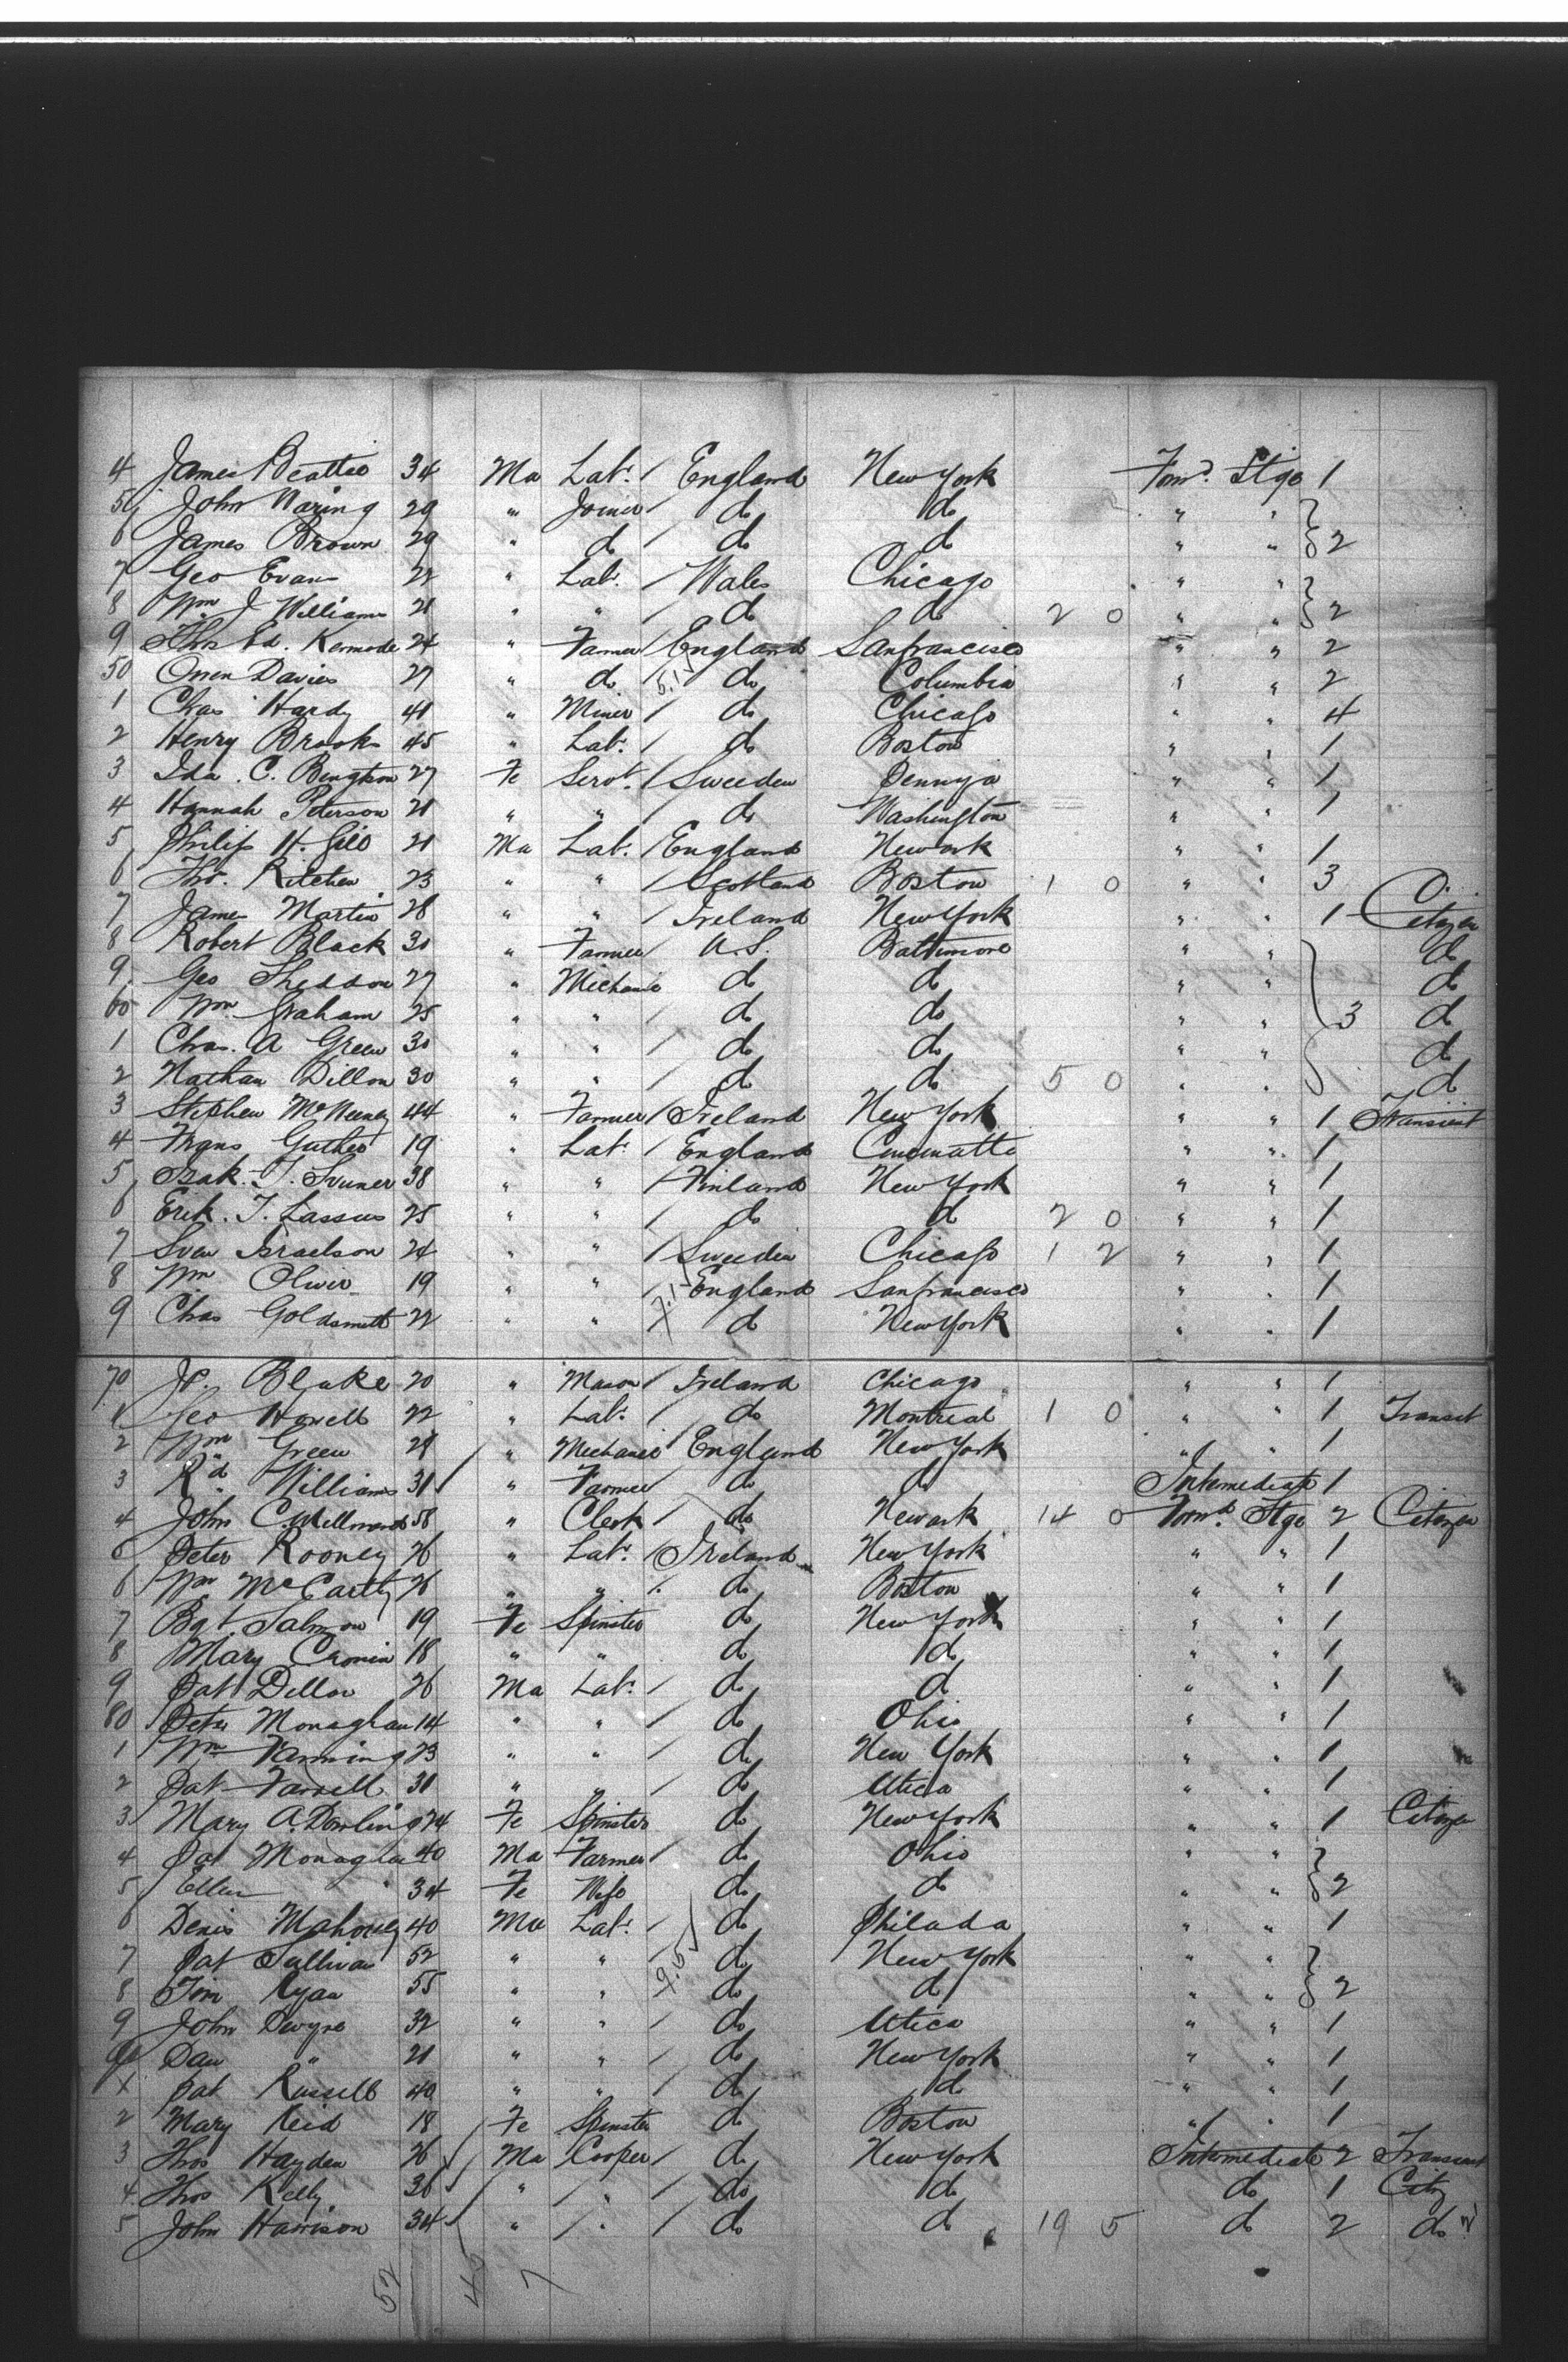 4 James Beattie 34 Ma Labr / England New York Forwd Stge 1
5 John Waring 29 " Joiner / do do " "
6 James Brown 29 " do / do do " " 2
7 Geo Evans 22 " Labr / Wales Chicago " "
8 Wm J Williams 21 " " do do 2 0 " " 2
9 Thos Ed. Kermode 24 " Farmer / England Sanfrancisco " " 2
50 Owen Davies 27 " do do Columbia " " 2
1 Chas Hardy 41 " Miner / do Chicago " " 4
2 Henry Brooks 45 " Labr / do Boston " " 1
3 Ida C. Bengtson 27 Fe Servt / Sweeden " " 1
4 Hannah Peterson 21 " " do Washington " " 1
5 Philip H. 21 Ma Lab. / England Newark " " 1
6 Thos. Ritchie 23 " " / Scotland Boston 1 0 " " 3
7 James Martin 28 " " / Ireland New York " " 1 Citizen
8 Robert Black 30 " Farmer U.S. Baltimore " " do
9 Geo 27 " Mechanic do do " " do
60 Wm Graham 25 " " / do do " " 3 do
1 Chas. A Green 30 " " / do do " " do
2 Nathan Dillon 30 " " / do do 5 0 " " do
3 Stephen 44 " Farmer / Ireland New York " " 1 Transient
4 19 " Labr / England Cincinatti " " 1
5 Isak 38 " " / Finland New York " " 1
6 Erik. J. Lassus 25 " " / do do 2 0 " " 1
7 Sven Israelson 24 " " / Sweeden Chicago 1 2 " " 1
8 Wm Oliver 19 " " England Sanfrancisco " " 1
9 Chas Goldsmith 22 " " / do New York " " 1
70 Blake 20 " Mason / Ireland Chicago " " 1
1 Geo Howell 22 " Labr / do Montreal 1 0 " " 1 Transit
2 Wm Green 28 / " Mechanic England New York " " 1
3 Rd Williams 31 / " Farmer do do Intermediate 1
4 John C. 58 " Clerk / do Newark 14 0 Forwd Stge 2 Citizen
5 Peter Rooney 26 " Labr / Ireland New York " " 1
6 Wm McCarthy 26 " " do Boston " " 1
7 Bgt. Salmon 19 Fe Spinster do New York " " 1
8 Mary Cronin 18 " " do do " " 1
9 Pat Dillon 26 Ma Labr / do do " " 1
80 Peter Monaghan 14 " " / do Ohio " " 1
1 Wm Fanning 23 " " / do New York " " 1
2 Pat Farrell 31 " " / do Utica " " 1
3 Mary A. Dowling 24 Fe Spinster do New York " " 1 Citizen
4 Pat Monaghan 40 Ma Farmer / do Ohio " "
5 Ellen 34 Fe Wife do do " " 2
6 Denis Mahoney 40 Ma Labr / do Philada " " 1
7 Pat Sullivan 52 " " do New York " "
8 Tim Ryan 55 " " do do " " 2
9 John Dwyre 32 " " / do Utica " " 1
90 Dan " 21 " " / do New York " " 1
1 Pat Russell 40 " " / do do " " 1
2 Mary Reid 18 Fe Spinster do Boston " " 1
3 Thos Hayden 26 / Ma Cooper / do New York Intermediate 2 Transient
4 Thos Kelly 36 / " " / do do do 1
5 John Harrison 34 / " " / do do 19 5 do 2 do
52 45 7